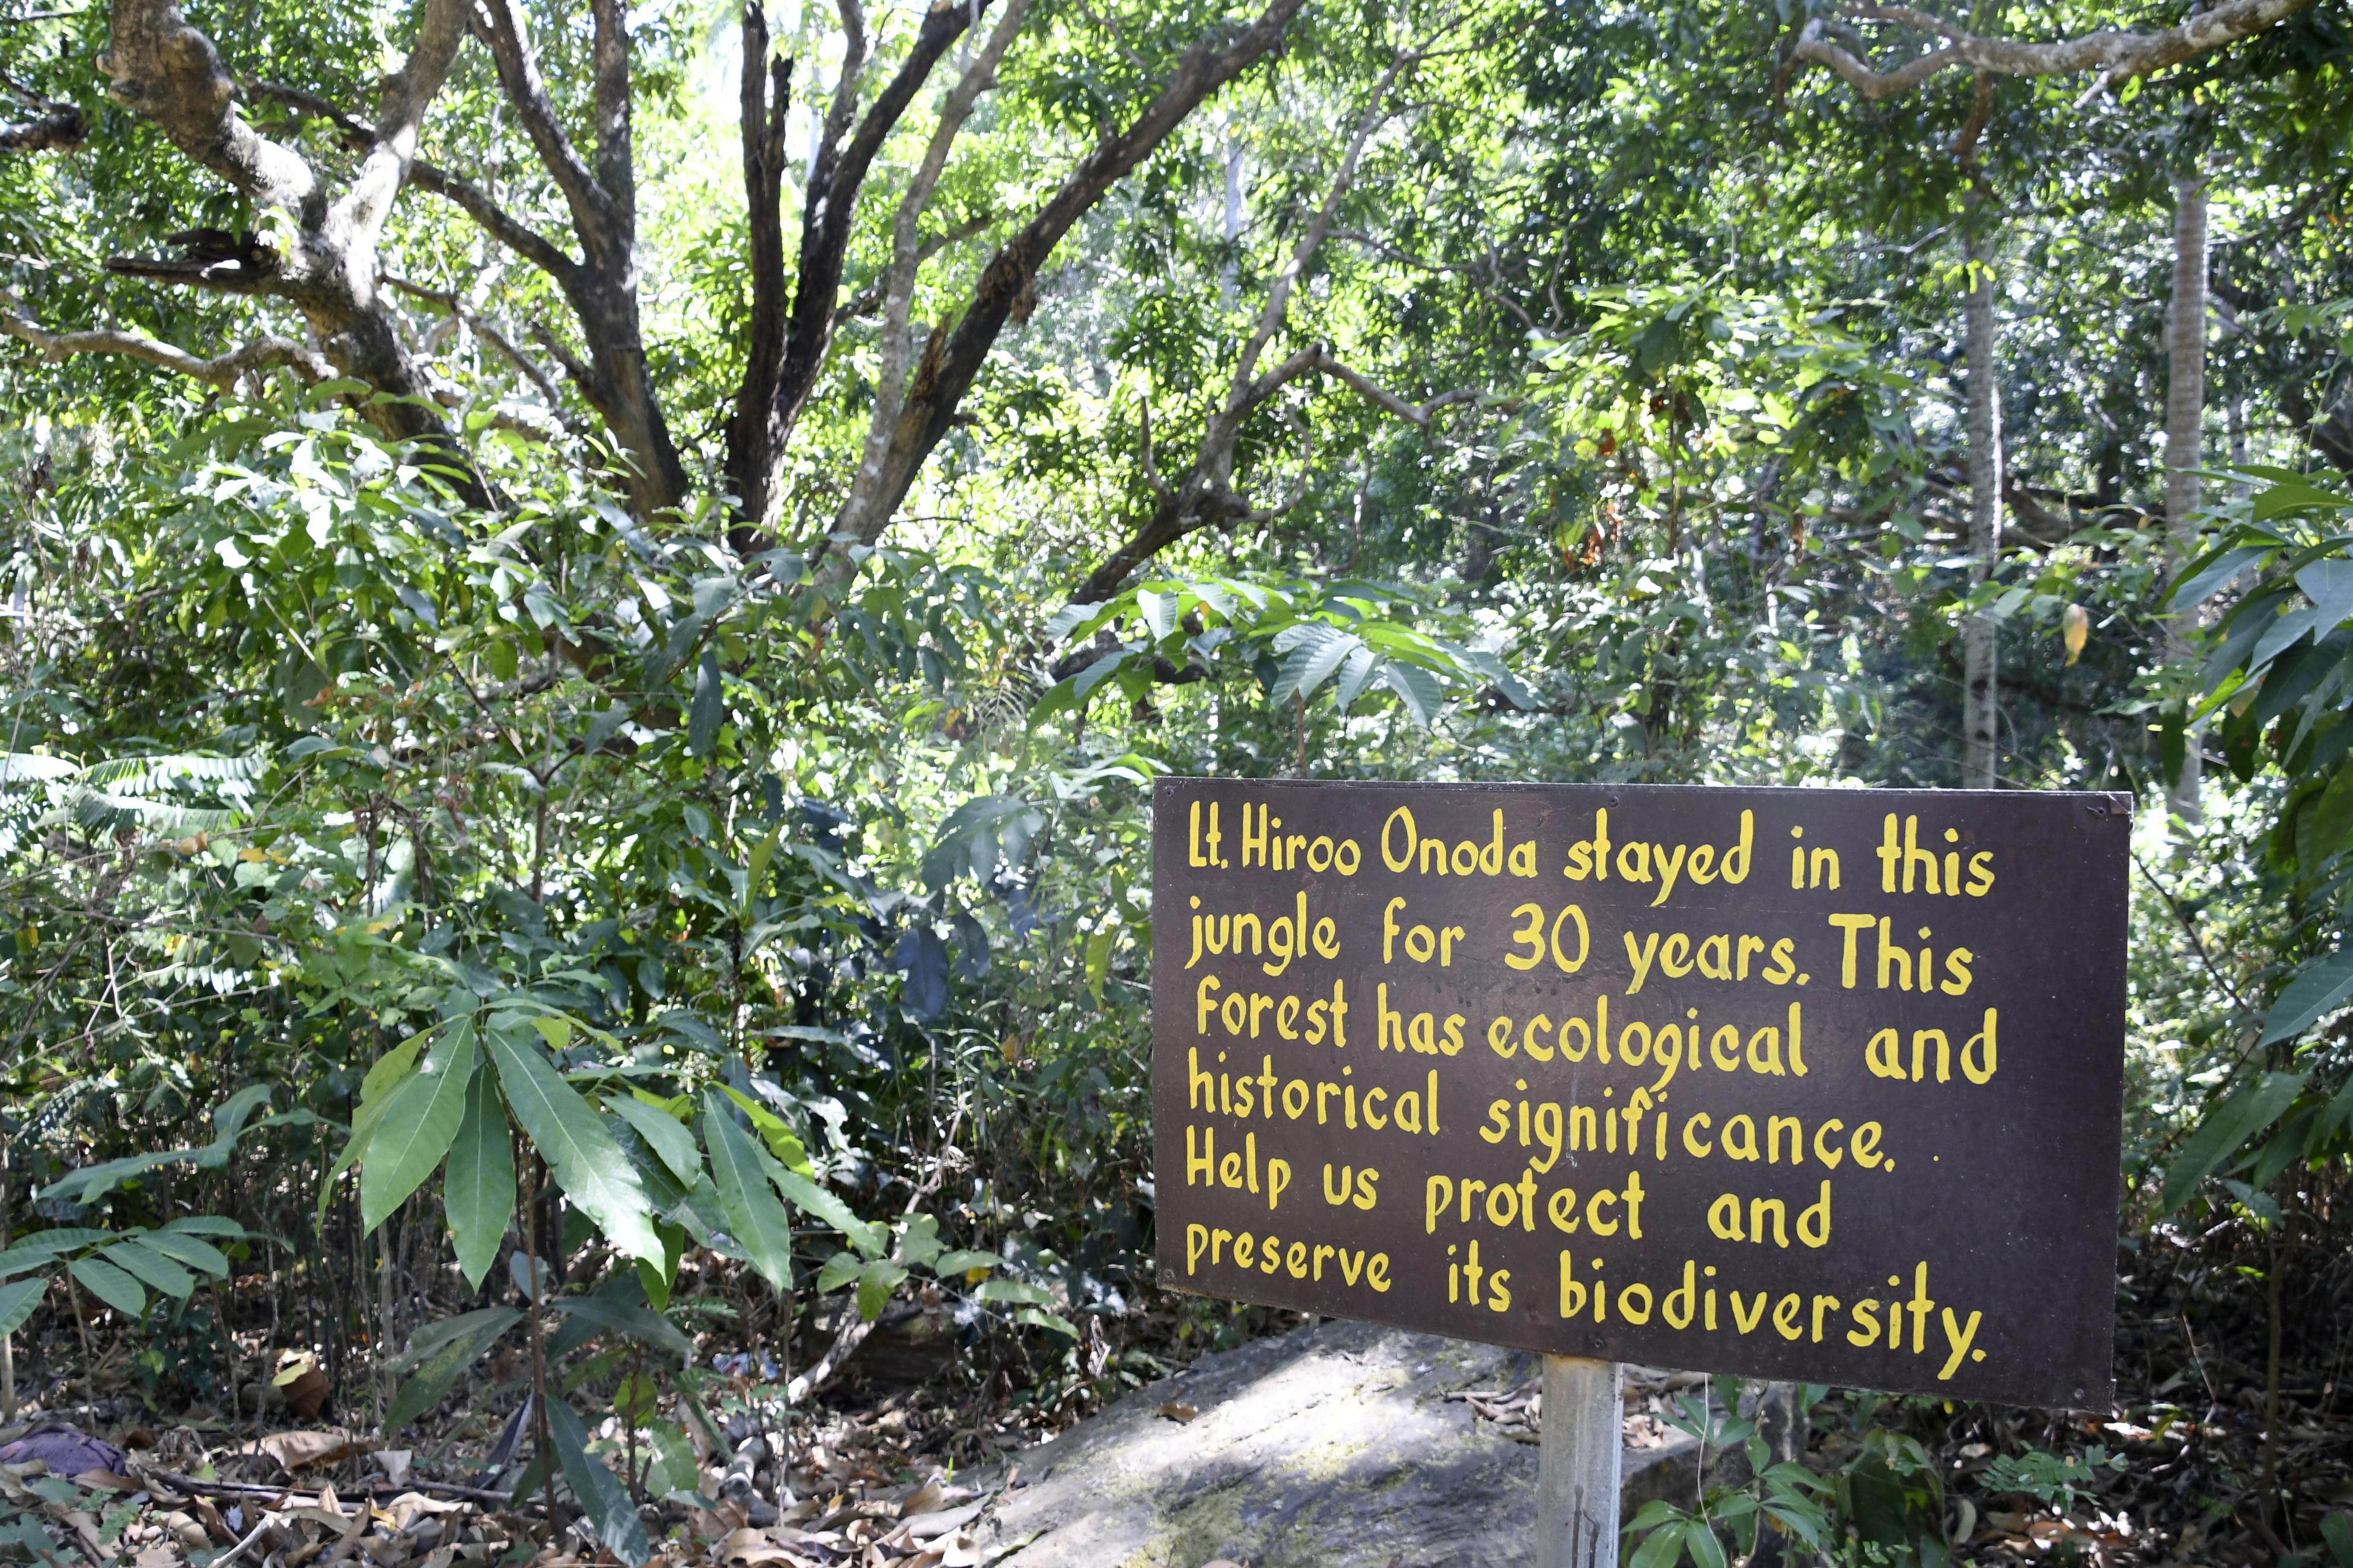 Lt. Hiroo Onoda stayed in this
jungle for 30 years. This
forest has ecological and
historical significance.
Help us protect and
preserve its biodiversity.